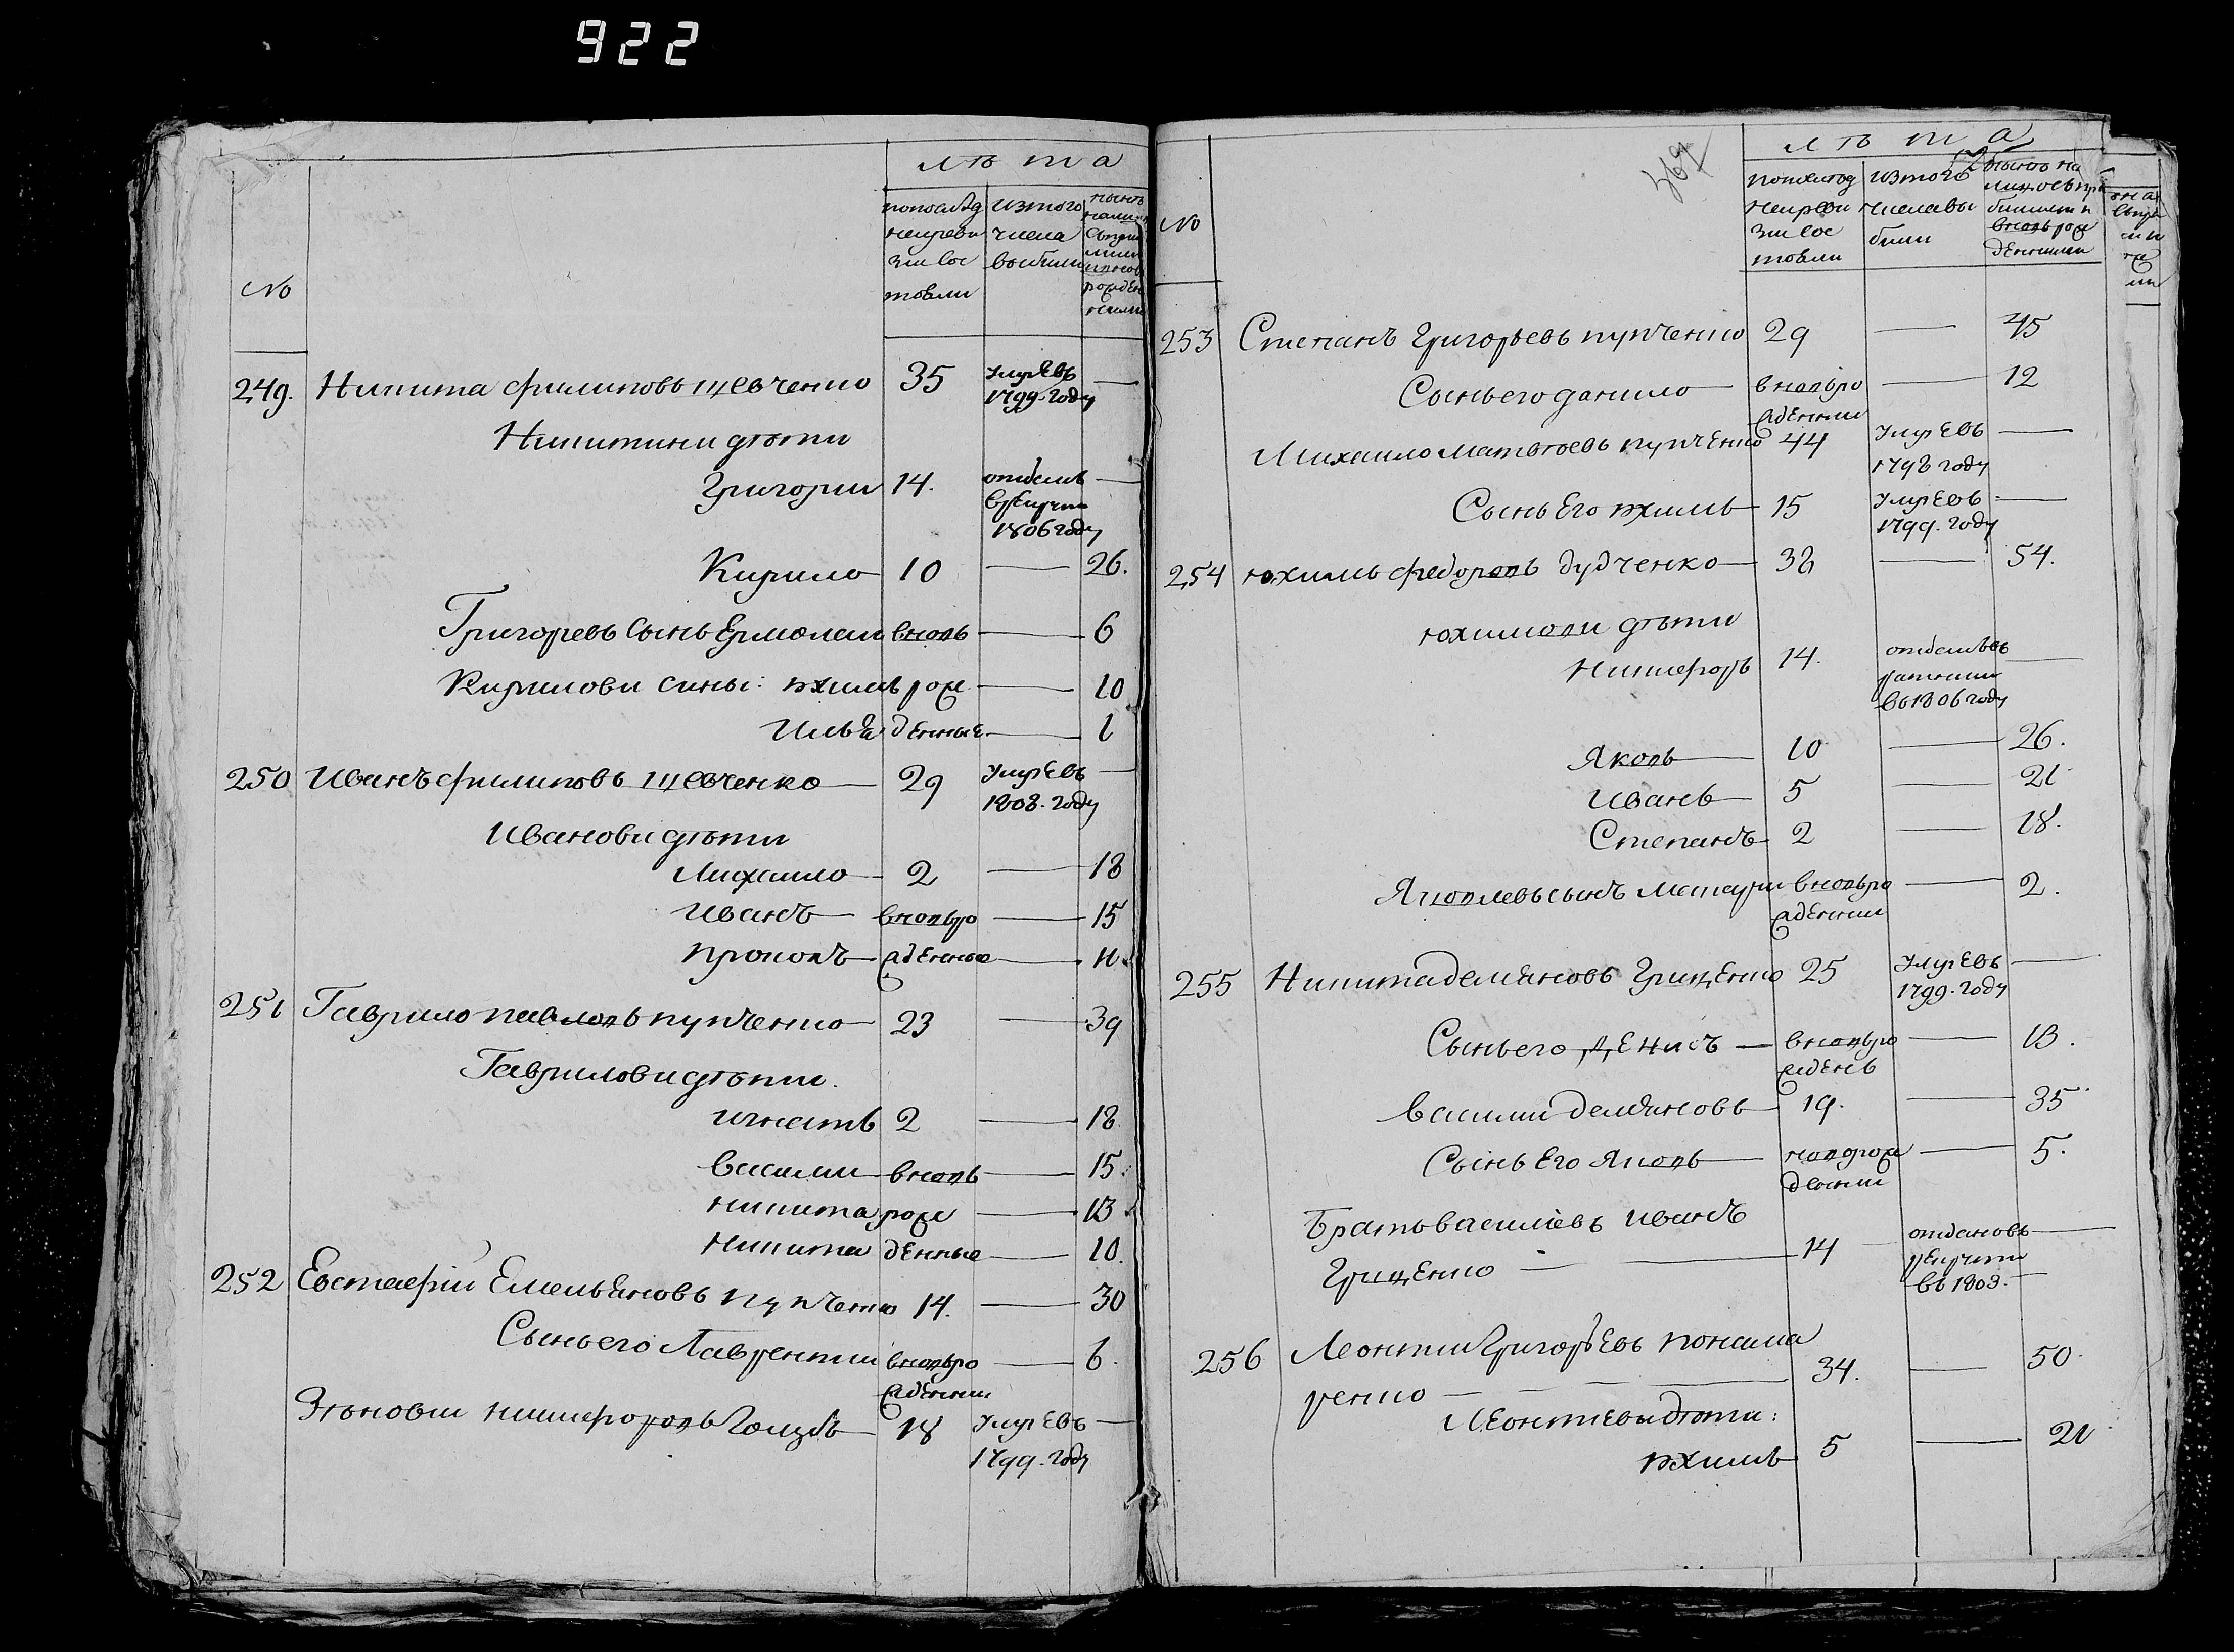 922
лѣта
№
попослѣд
ней реви
зии сос
тояли
изтого
числа
выбыли
нынѣ
249. Никита филиповъ шевченко 35 умре въ
1799. году —
Никитини дѣти
Григории 14. отданъ
в рекрути
1806 году —
Кирило 10 — 26.
Григорьевъ сынъ Ермолаи вновь — 6
Кирилови сины: юхимъ рож — 10
Илья денные — 1
250 Иванъ филиповъ шевченко — 29 умре въ
1808. году —
Иванови дѣти
Михаило — 2 — 18
Иванъ — вновь ро — 15
прокопъ — жденные — 11.
251 Гаврило павловъ купченко — 23 — 39
Гаврилови дѣти.
игнатъ 2 — 18
василии — вновь — 15.
никита рож — 13
никита денные — 10.
252 Евстафiй Емельяновъ купченко 14. — 30
Сынъ его Лаврентии вновь ро
жденнии — 6.
никифоровъ 18 умре въ
1799. году —
369
лѣта
№
изтого
числа вы
были
253 Степанъ Григорьевъ купченко 29 — 45
Сынъ его данило — вновь ро
жденнии — 12
Михаило матвѣевъ купченко 44 умре въ
1798 году —
Сынъ Его юхимъ — 15 умре въ
1799. году —
254 юхимъ федоровъ дудченко — 38 — 54.
юхимови дѣти
никифоръ 14. отданъ въ
рекрути
въ 1806 году —
Яковъ — 10 — 26.
Иванъ — 5 — 21
Степанъ — 2 — 18.
Яковлевъ сынъ вновь ро
жденнии — 2.
255 Никита демяновъ Гриценко 25 умре въ
1799. году —
Сынъ его Денисъ — вновь ро
жденъ — 13.
василии демяновъ — 19. — 35
Сынъ Его Яковъ — новорож
деннии — 5.
Братъ василiевъ иванъ
Гриценко — 14 отданъ въ
рекрути
въ 1808. —
256 Леонтии Григорьевъ понама
ренко — 34. — 50
Леонтиеви дѣти:
юхимъ 5 — 21